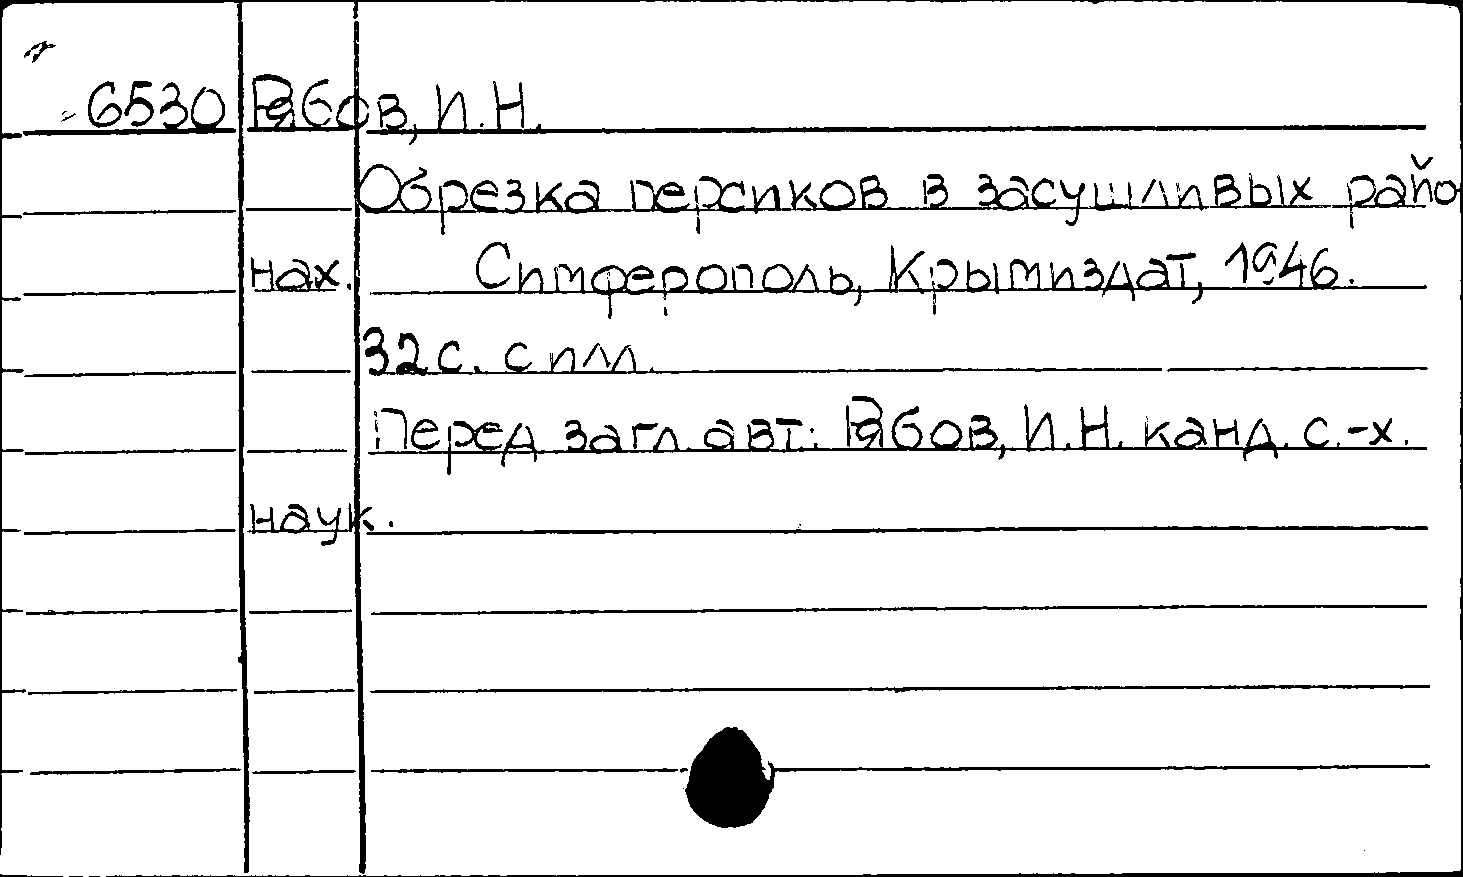 6530 Рябов, И.Н.
Обрезка персиков в засушливых райо
нах. Симферополь, Крымиздат, 1946.
32с. с илл.
Перед загл. авт.: Рябов, И.Н. канд. с.-х.
наук.